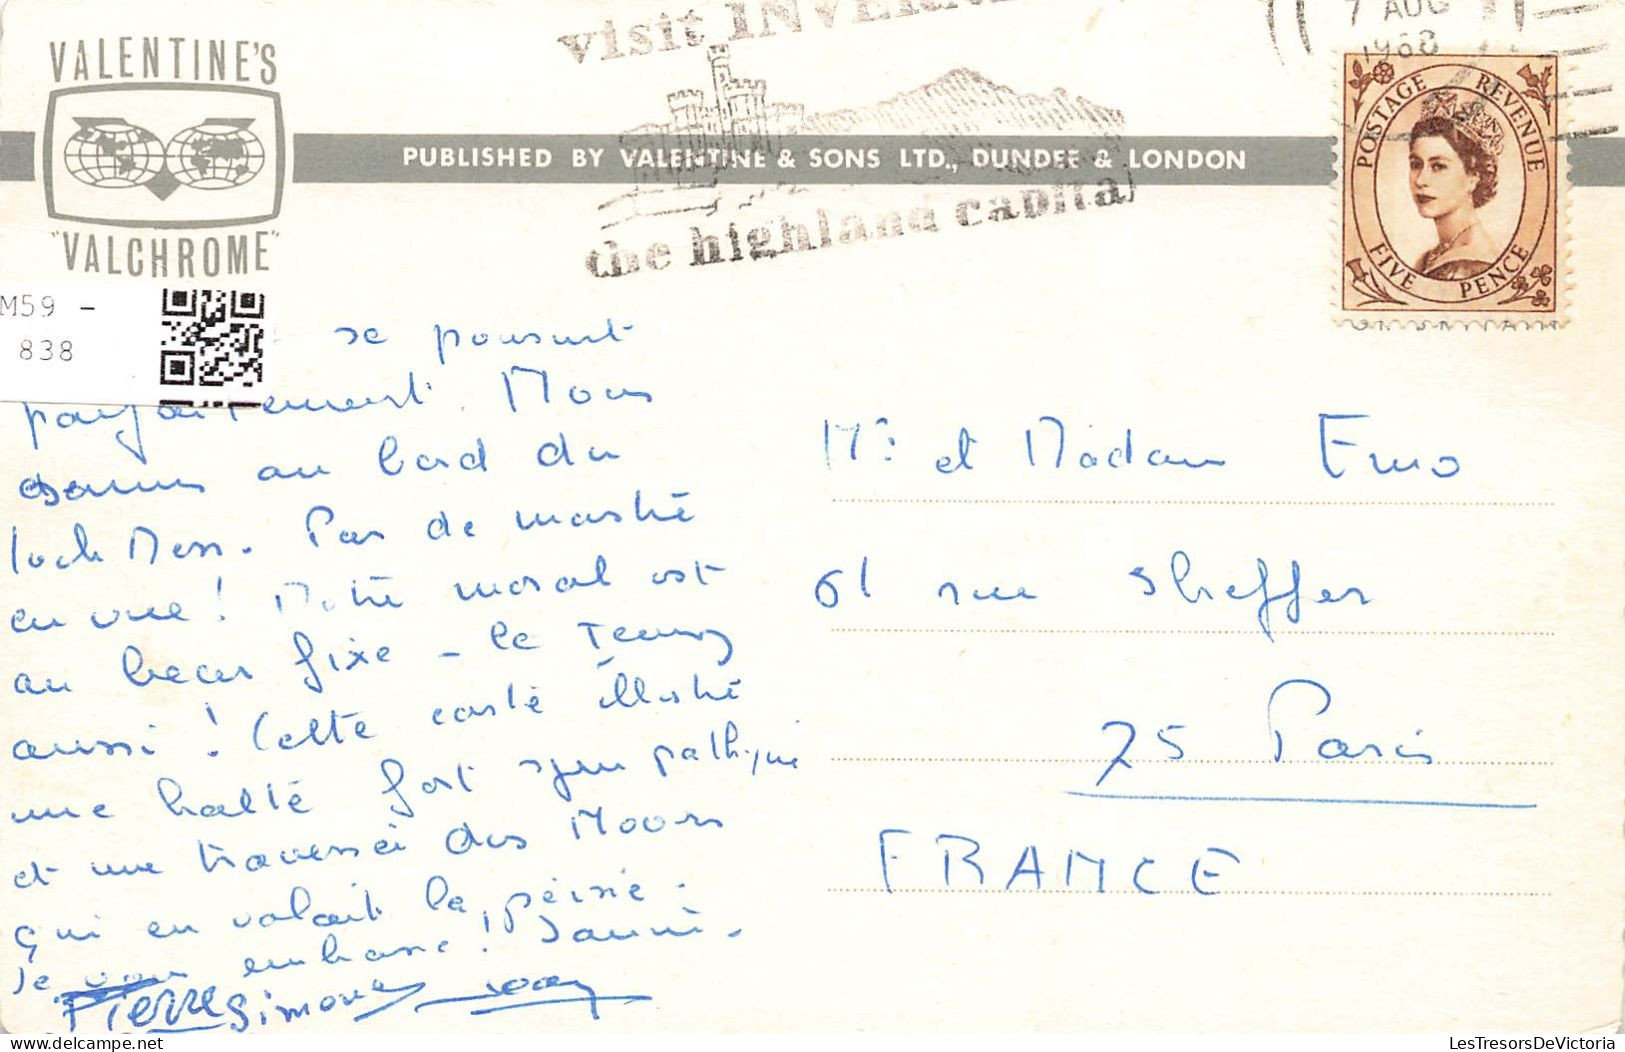 VALENTINE'S
"VALCHROME"
visit INVER
the highland capital
7 AUG
1968
POSTAGE REVENUE
FIVE PENCE
PUBLISHED BY VALENTINE & SONS LTD., DUNDEE & LONDON
M59 -
838
se poursuit
parfaitement. Nous
sommes au bord du
loch Ness. Pas de monstre
en vue! Notre moral est
au beau fixe - le temps
aussi! Cette carte illustre
une halte fort sympathique
et une traversée des Moors
qui en valait la peine.
Je vous embrasse!
Pierre Simone
Mr et Madame Emo
61 rue Sheffer
75 Paris
FRANCE
LesTresorsDeVictoria